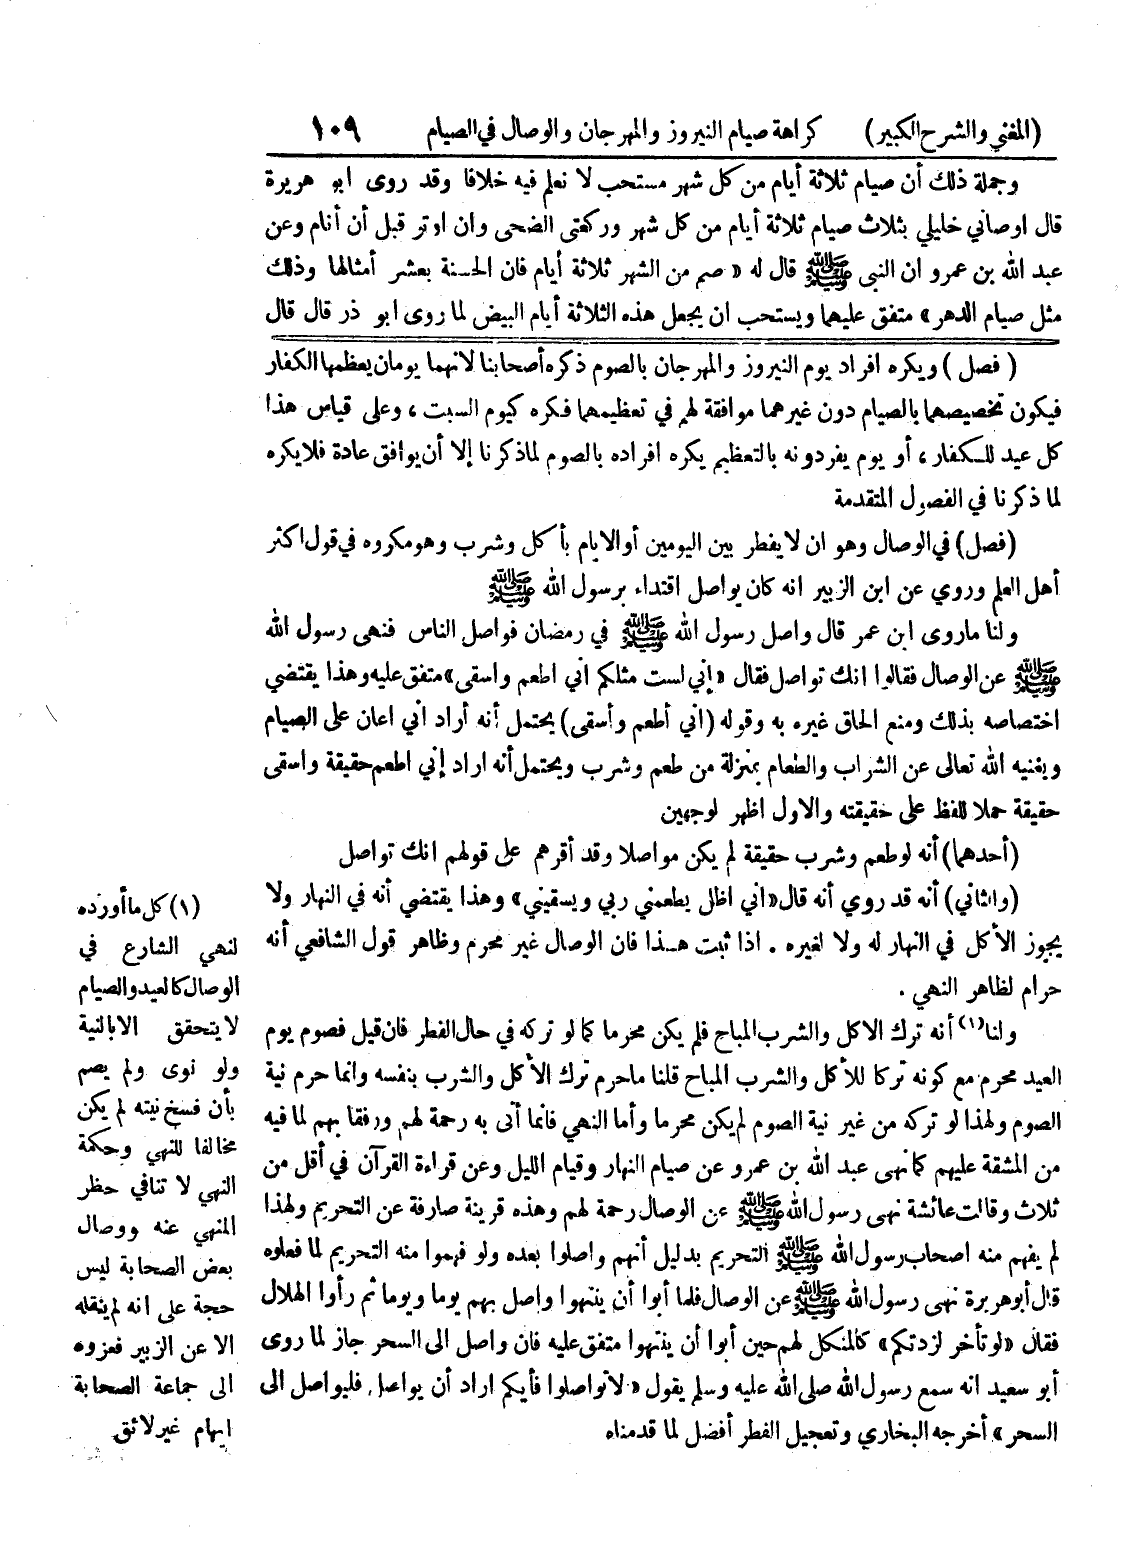 (المغني والشرح الكبير) كراهة صيام النيروز والمهرجان والوصال في الصيام ١٠٩
وجملة ذلك أن صيام ثلاثة أيام من كل شهر مستحب لا نعلم فيه خلافا وقد روى ابو هريرة
قال اوصاني خليلي بثلاث صيام ثلاثة أيام من كل شهر وركعتي الضحى وان اوتر قبل أن أنام وعن
عبد الله بن عمرو ان النبي ﷺ قال له « صم من الشهر ثلاثة أيام فان الحسنة بعشر أمثالها وذلك
مثل صيام الدهر » متفق عليهما ويستحب ان يجعل هذه الثلاثة أيام البيض لما روى ابو ذر قال قال
( فصل ) ويكره افراد يوم النيروز والمهرجان بالصوم ذكره أصحابنا لانهما يومان يعظمها الكفار
فيكون تخصيصهما بالصيام دون غيرهما موافقة لهم في تعظيمهما فكره كيوم السبت ، وعلى قياس هذا
كل عيد للكفار ، أو يوم يفردونه بالتعظيم يكره افراده بالصوم لما ذكرنا إلا أن يوافق عادة فلا يكره
لما ذكرنا في الفصول المتقدمة
(فصل) في الوصال وهو ان لا يفطر بين اليومين أو الايام بأكل وشرب وهو مكروه في قول اكثر
أهل العلم وروي عن ابن الزبير انه كان يواصل اقتداء برسول الله ﷺ
ولنا ماروى ابن عمر قال واصل رسول الله ﷺ في رمضان فواصل الناس فنهى رسول الله
ﷺ عن الوصال فقالوا انك تواصل فقال « إني لست مثلكم اني اطعم واسقى » متفق عليه وهذا يقتضي
اختصاصه بذلك ومنع الحاق غيره به وقوله (اني أطعم وأسقى) يحتمل أنه أراد اني اعان على الصيام
ويغنيه الله تعالى عن الشراب والطعام بمنزلة من طعم وشرب ويحتمل أنه اراد إني اطعم حقيقة واسقى
حقيقة حملا للفظ على حقيقته والاول اظهر لوجهين
(أحدهما) أنه لو طعم وشرب حقيقة لم يكن مواصلا وقد أقرهم على قولهم انك تواصل
(والثاني) أنه قد روي أنه قال « اني اظل يطعمني ربي ويسقيني » وهذا يقتضي أنه في النهار ولا
يجوز الأكل في النهار له ولا لغيره . اذا ثبت هذا فان الوصال غير محرم وظاهر قول الشافعي أنه
حرام لظاهر النهي .
ولنا(١) أنه ترك الاكل والشرب المباح فلم يكن محرما كما لو تركه في حال الفطر فان قيل فصوم يوم
العيد محرم مع كونه تركا للأكل والشرب المباح قلنا ما حرم ترك الأكل والشرب بنفسه وانما حرم نية
الصوم ولهذا لو تركه من غير نية الصوم لم يكن محرما وأما النهي فانما أتى به رحمة لهم ورفقا بهم لما فيه
من المشقة عليهم كما نهى عبد الله بن عمرو عن صيام النهار وقيام الليل وعن قراءة القرآن في أقل من
ثلاث وقالت عائشة نهى رسول الله ﷺ عن الوصال رحمة لهم وهذه قرينة صارفة عن التحريم ولهذا
لم يفهم منه اصحاب رسول الله ﷺ التحريم بدليل أنهم واصلوا بعده ولو فهموا منه التحريم لما فعلوه
قال أبو هريرة نهى رسول الله ﷺ عن الوصال فلما أبوا أن ينتهوا واصل بهم يوما ويوما ثم رأوا الهلال
فقال « لو تأخر لزدتكم » كالمنكل لهم حين أبوا أن ينتهوا متفق عليه فان واصل الى السحر جاز لما روى
أبو سعيد انه سمع رسول الله صلى الله عليه وسلم يقول « لا تواصلوا فأيكم اراد أن يواصل فليواصل الى
السحر » أخرجه البخاري وتعجيل الفطر أفضل لما قدمناه
(١) كل ما أورده
لنهي الشارع في
الوصال كالعيد والصيام
لا يتحقق الا بالنية
ولو نوى ولم يصم
بأن فسخ نيته لم يكن
مخالفا للنهي وحكمة
النهي لا تنافي حظر
المنهي عنه ووصال
بعض الصحابة ليس
حجة على انه لم ينقله
الا عن الزبير فعزوه
الى جماعة الصحابة
ايهام غير لائق